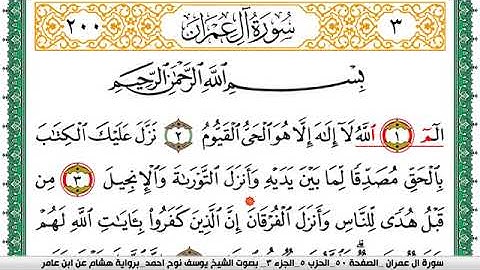 ٢٠٠ سُورَةُ آلِ عِمْرَان ٣
بِسْمِ اللَّهِ الرَّحْمَٰنِ الرَّحِيمِ
الٓمٓ ١ اللَّهُ لَآ إِلَٰهَ إِلَّا هُوَ الْحَيُّ الْقَيُّومُ ٢ نَزَّلَ عَلَيْكَ الْكِتَٰبَ
بِالْحَقِّ مُصَدِّقًا لِّمَا بَيْنَ يَدَيْهِ وَأَنزَلَ التَّوْرَىٰةَ وَالْإِنجِيلَ ٣ مِن
قَبْلُ هُدًى لِّلنَّاسِ وَأَنزَلَ الْفُرْقَانَ إِنَّ الَّذِينَ كَفَرُوا بِـَٔايَٰتِ اللَّهِ لَهُمْ
سورة ال عمران _الصفحة ٥٠_الحزب ٥_الجزء ٣_ بصوت الشيخ يوسف نوح احمد_برواية هشام عن ابن عامر